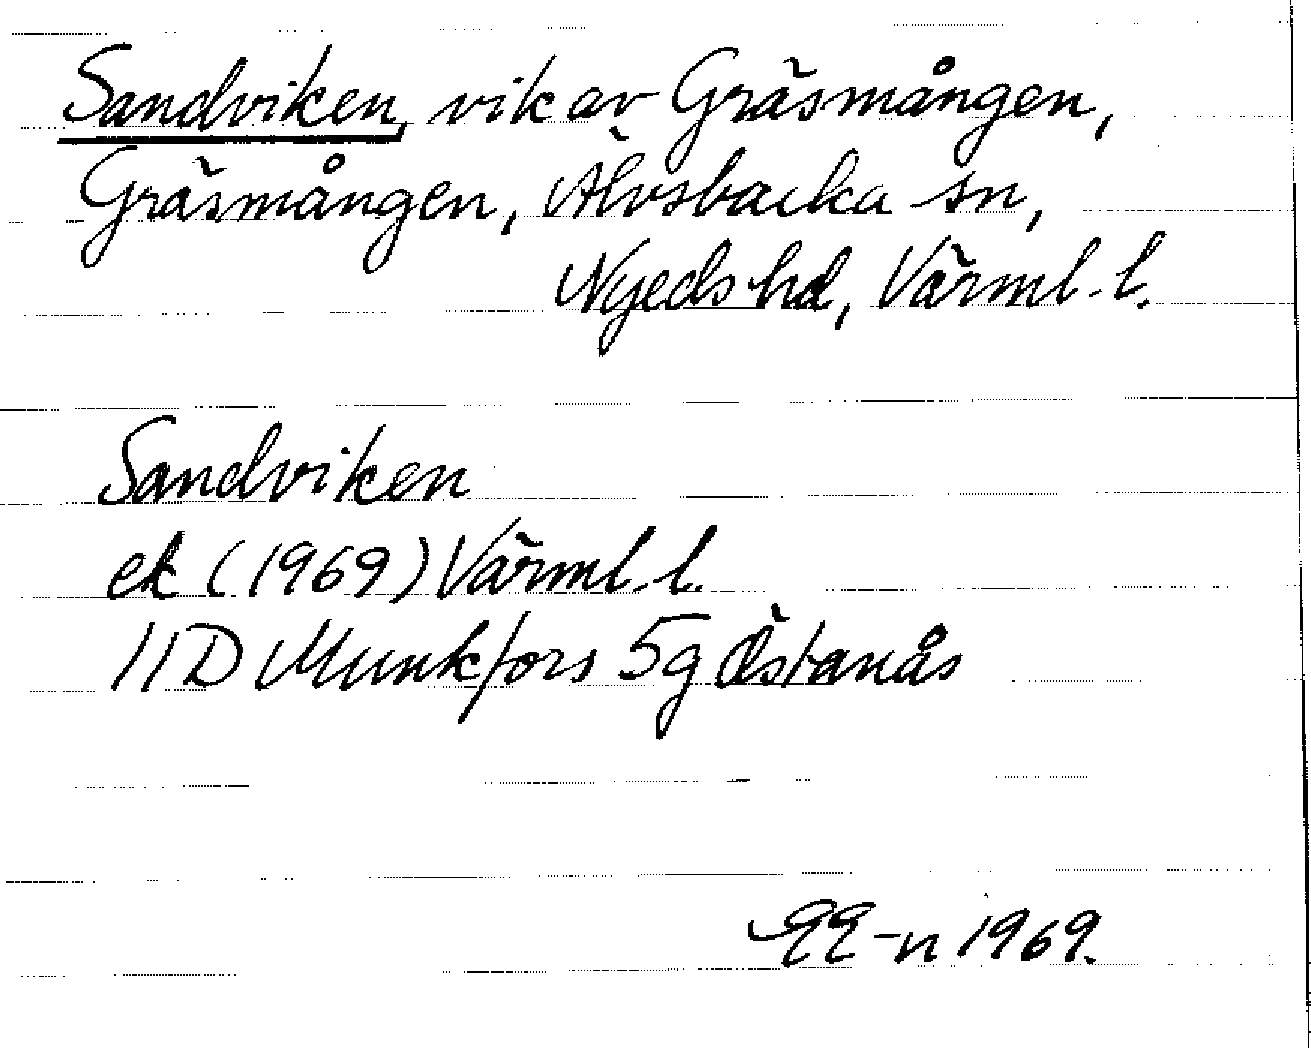 Sandviken, vik av Gräsmången,
Gräsmången, Älvsbacka sn,
Nyeds hd, Värml. l.
Sandviken
ek (1969) Värml. l.
11D Munkfors 5g Östanås
EE-n 1969.